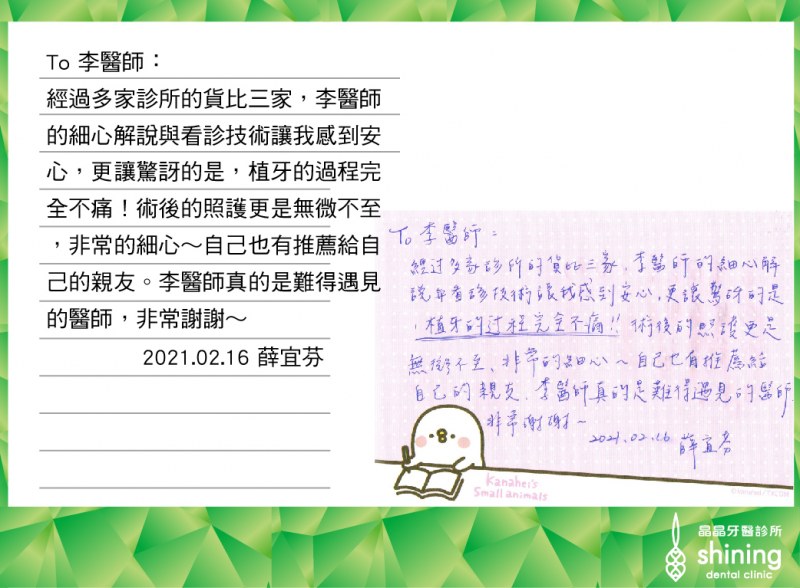 To 李醫師：
經過多家診所的貨比三家，李醫師
的細心解說與看診技術讓我感到安
心，更讓驚訝的是，植牙的過程完
全不痛！術後的照護更是無微不至
，非常的細心～自己也有推薦給自
己的親友。李醫師真的是難得遇見
的醫師，非常謝謝～
2021.02.16 薛宜芬
To 李醫師：
經过多家診所的貨比三家，李醫師的細心解
說与看診技術讓我感到安心，更讓驚訝的是
，植牙的过程完全不痛!! 術後的照護更是
無微不至、非常的細心～自己也有推薦給
自己的親友，李醫師真的是難得遇見的醫師，
非常謝謝～
2021.02.16 薛宜芬
Kanahei's
Small animals
晶晶牙醫診所
shining
dental clinic